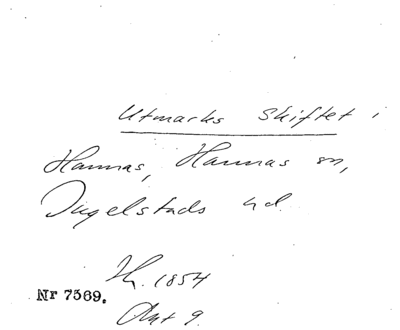 Utmarks skiftet i
Hannas, Hannas sn,
Ingelstads hd.
Th. 1854
Nr 7369.
Akt 9.